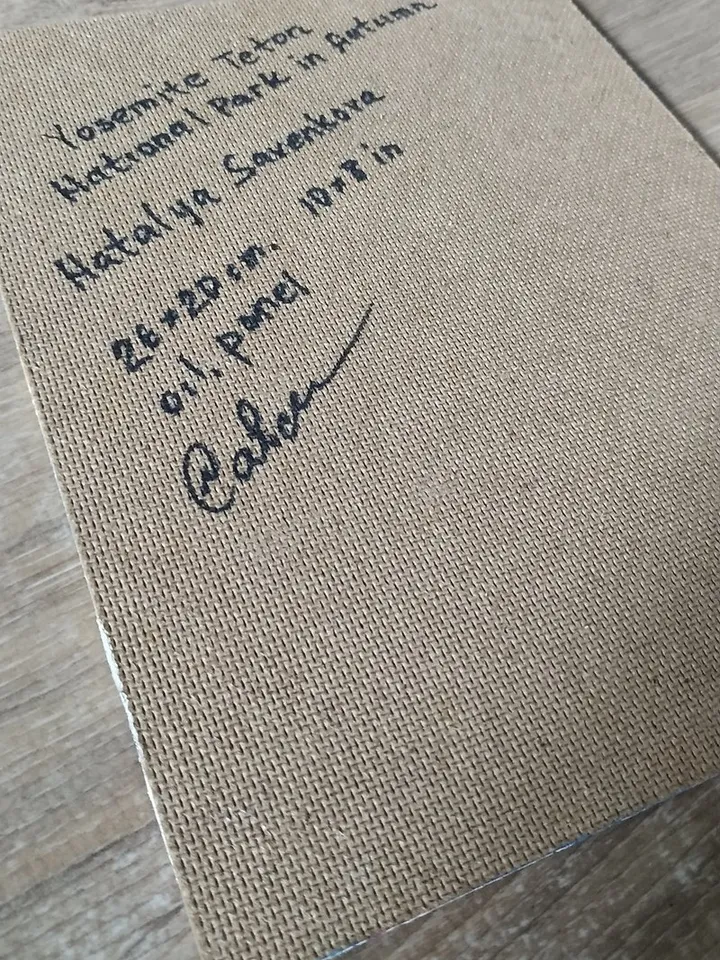 Yosemite Teton
National Park in Autumn
Natalya Savenkova
26×20 cm. 10×8 in
oil, panel